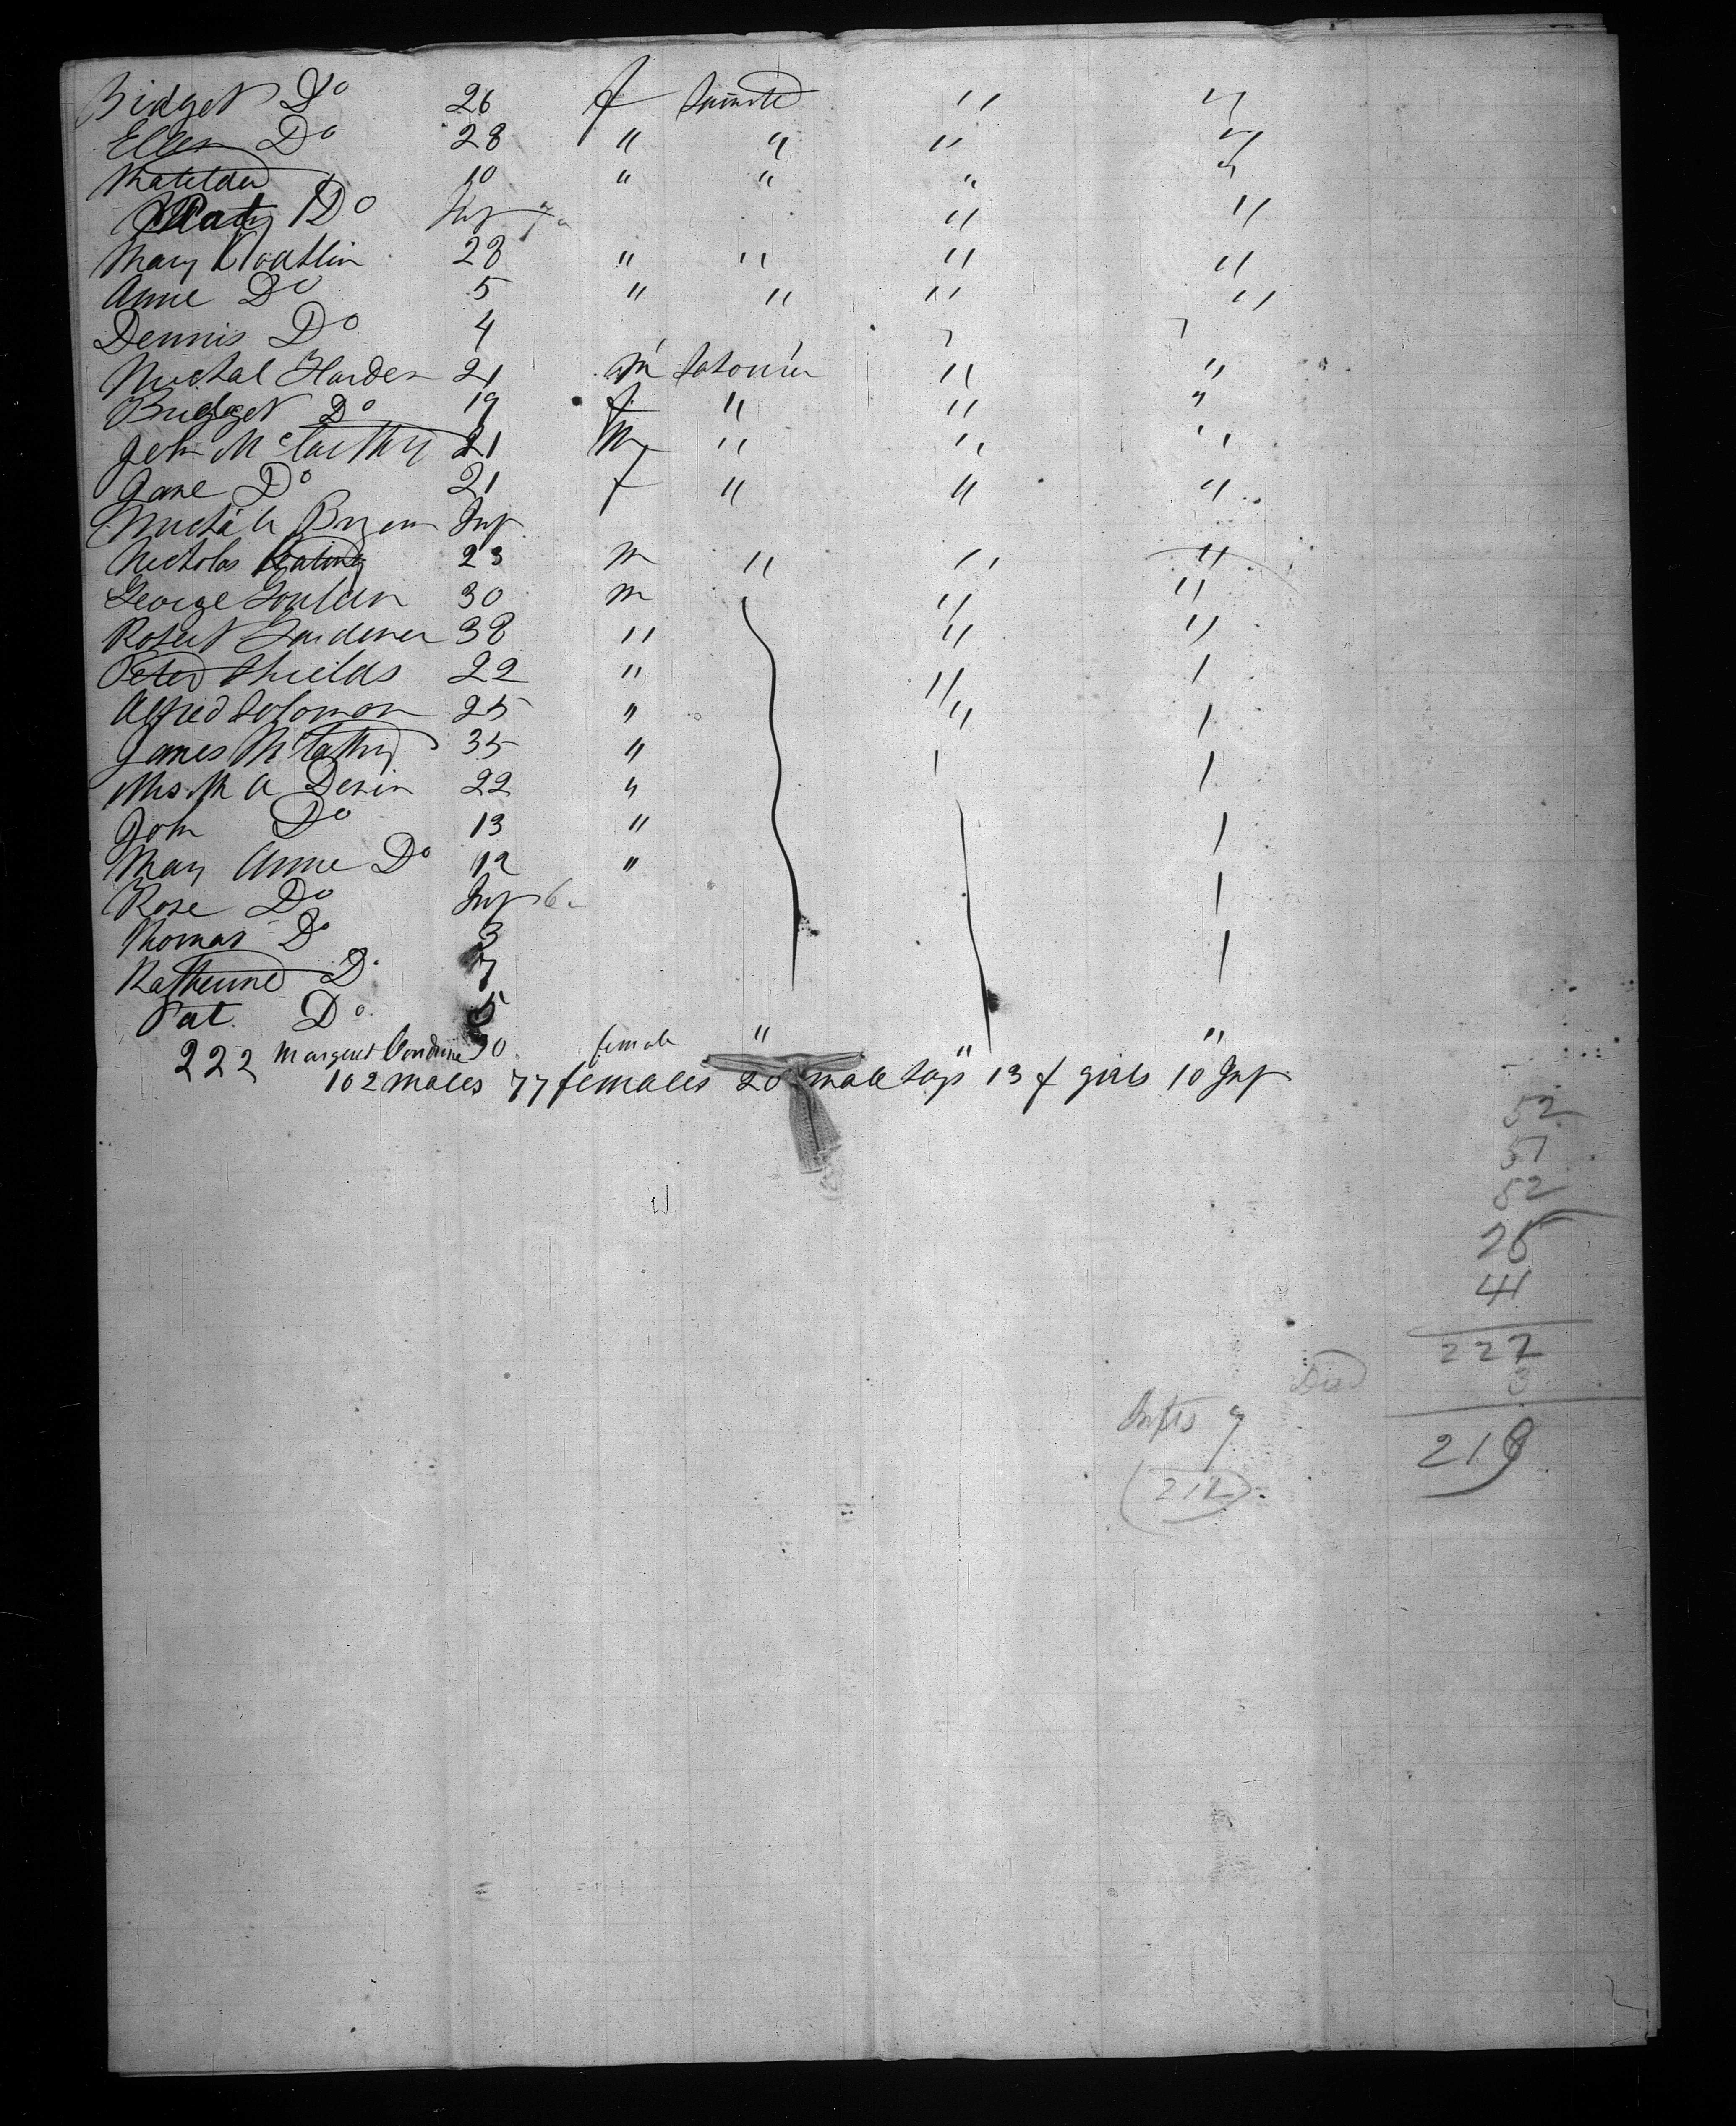 Bidget Do 26 f " "
Ellen Do 28 " " " "
Matilda 10 " " " "
Do Inf " "
Mary 28 " " " "
Anne Do 5 " " " "
Dennis Do 4
Michal Harden 21 m " "
Bridget Do 19 f " " "
John McCarthy 21 m " " "
Jane Do 21 f " " "
Bryan Inf
Nicholas Keating 23 m " " "
George 30 m " "
Robert Gardener 38 " " "
Peter Shields 22 " "
Alfred Solomon 25 " "
James McCarthy 35 "
Mrs M A Devin 22 "
John Do 13 "
Mary Anne Do 12 "
Rose Do Inf
Thomas Do 3
Katherine Do 7
Pat. Do 5
222 Margeret 30 female " " "
102 males 77 females 20 male boys 13 f girls 10 Inf
52
51
52
26
41
227
Died 3
Infts 9
219
(212)